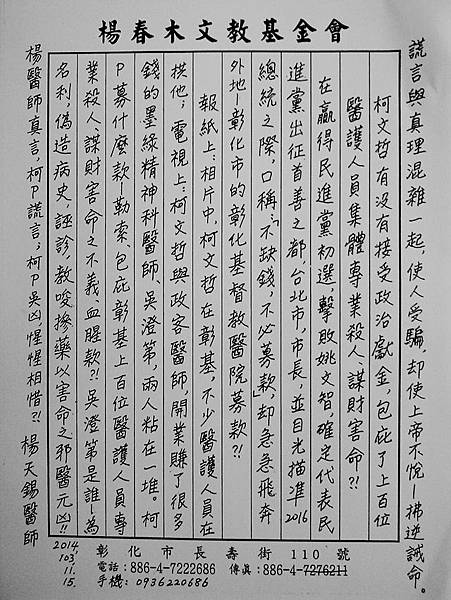 楊春木文教基金會
謊言與真理混雜一起，使人受騙，却使上帝不悅－拂逆誡命。
柯文哲有沒有接受政治獻金，包庇了上百位
醫護人員集體專業殺人、謀財害命？！
在贏得民進黨初選，擊敗姚文智，確定代表民
進黨出征首善之都台北市，市長，並目光描準2016
總統之際，口稱：「不缺錢，不必募款」，却急急飛奔
外地－彰化市的彰化基督教醫院募款？！
報紙上：相片中，柯文哲在彰基，不少醫護人員在
拱他；電視上：柯文哲與政客醫師，開業賺了很多
錢的墨綠精神科醫師、吳澄第，兩人粘在一堆。柯
P募什麼款－勒索、包庇彰基上百位醫護人員專
業殺人謀財害命之不義血腥款？！吳澄第是誰－為
名利，偽造病史、誣診、教唆摻藥以害命之邪醫元凶！！
楊醫師真言，柯P謊言；柯P吳凶惺惺相惜？！ 楊天錫醫師
2014.
103.
11.
15.
彰化市長壽街110號
電話：886-4-7222686 傳真：886-4-7276211
手機：0936220686